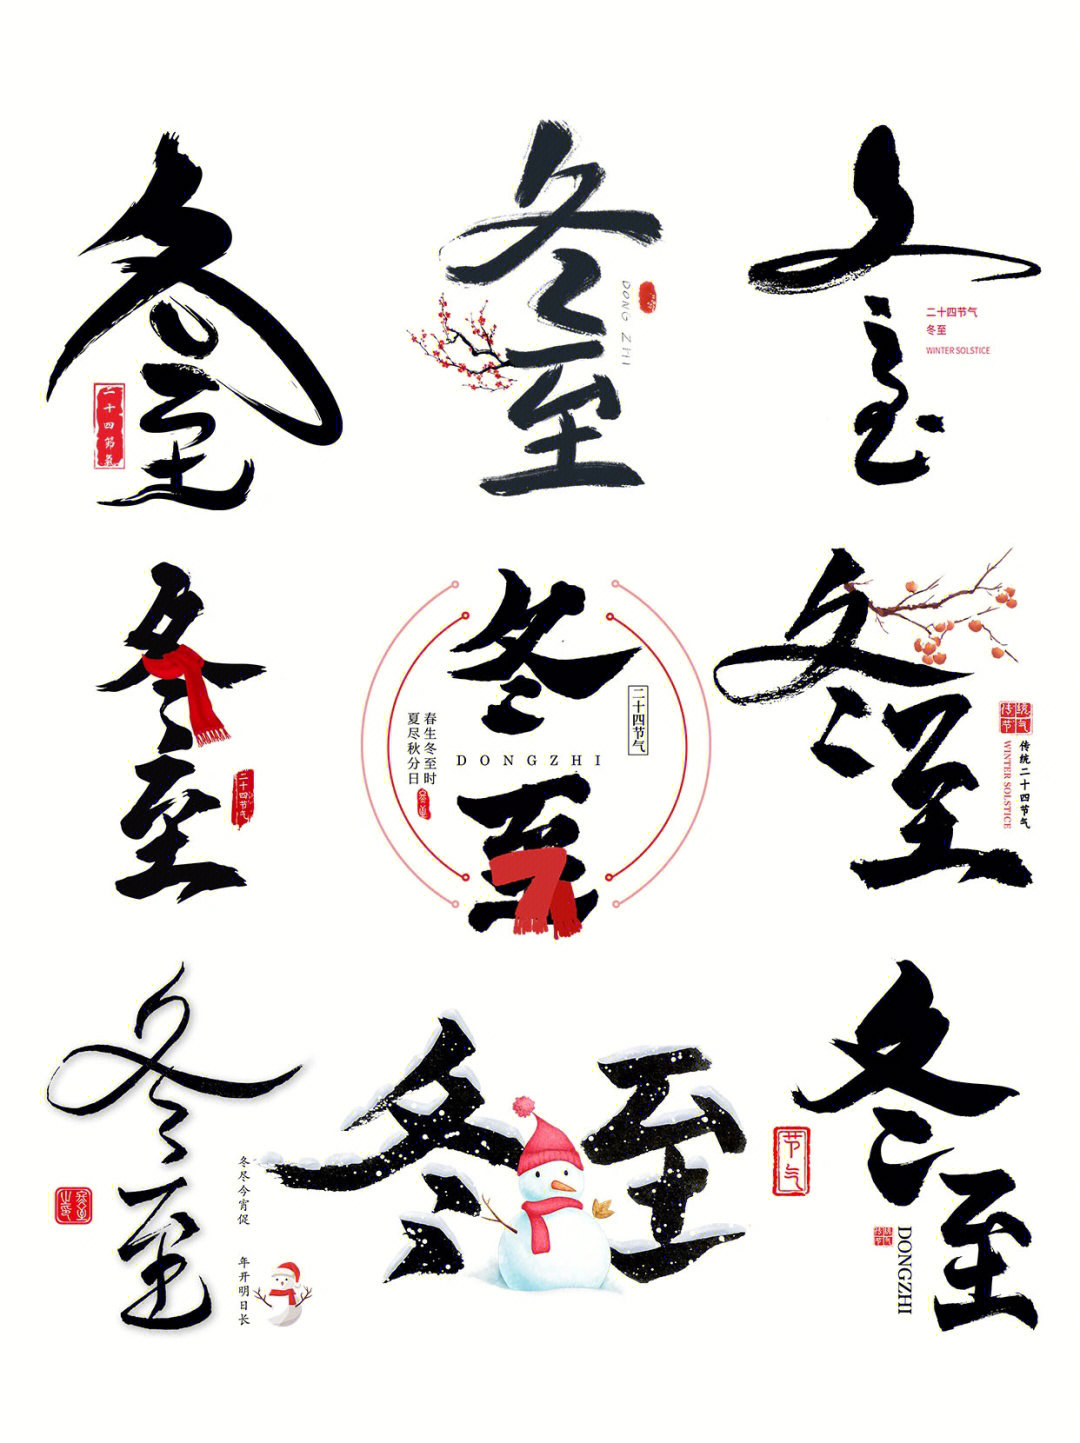 冬至
二十四節氣
冬至
DONG ZHI
冬至
二十四节气
冬至
WINTER SOLSTICE
冬至
二十四节气
冬至
二十四节气
DONGZHI
春生冬至时
夏尽秋分日
冬至
冬至
传统节气
传统二十四节气
WINTER SOLSTICE
冬至
冬尽今宵促
年开明日长
冬至
冬至
节气
传统节气
DONGZHI